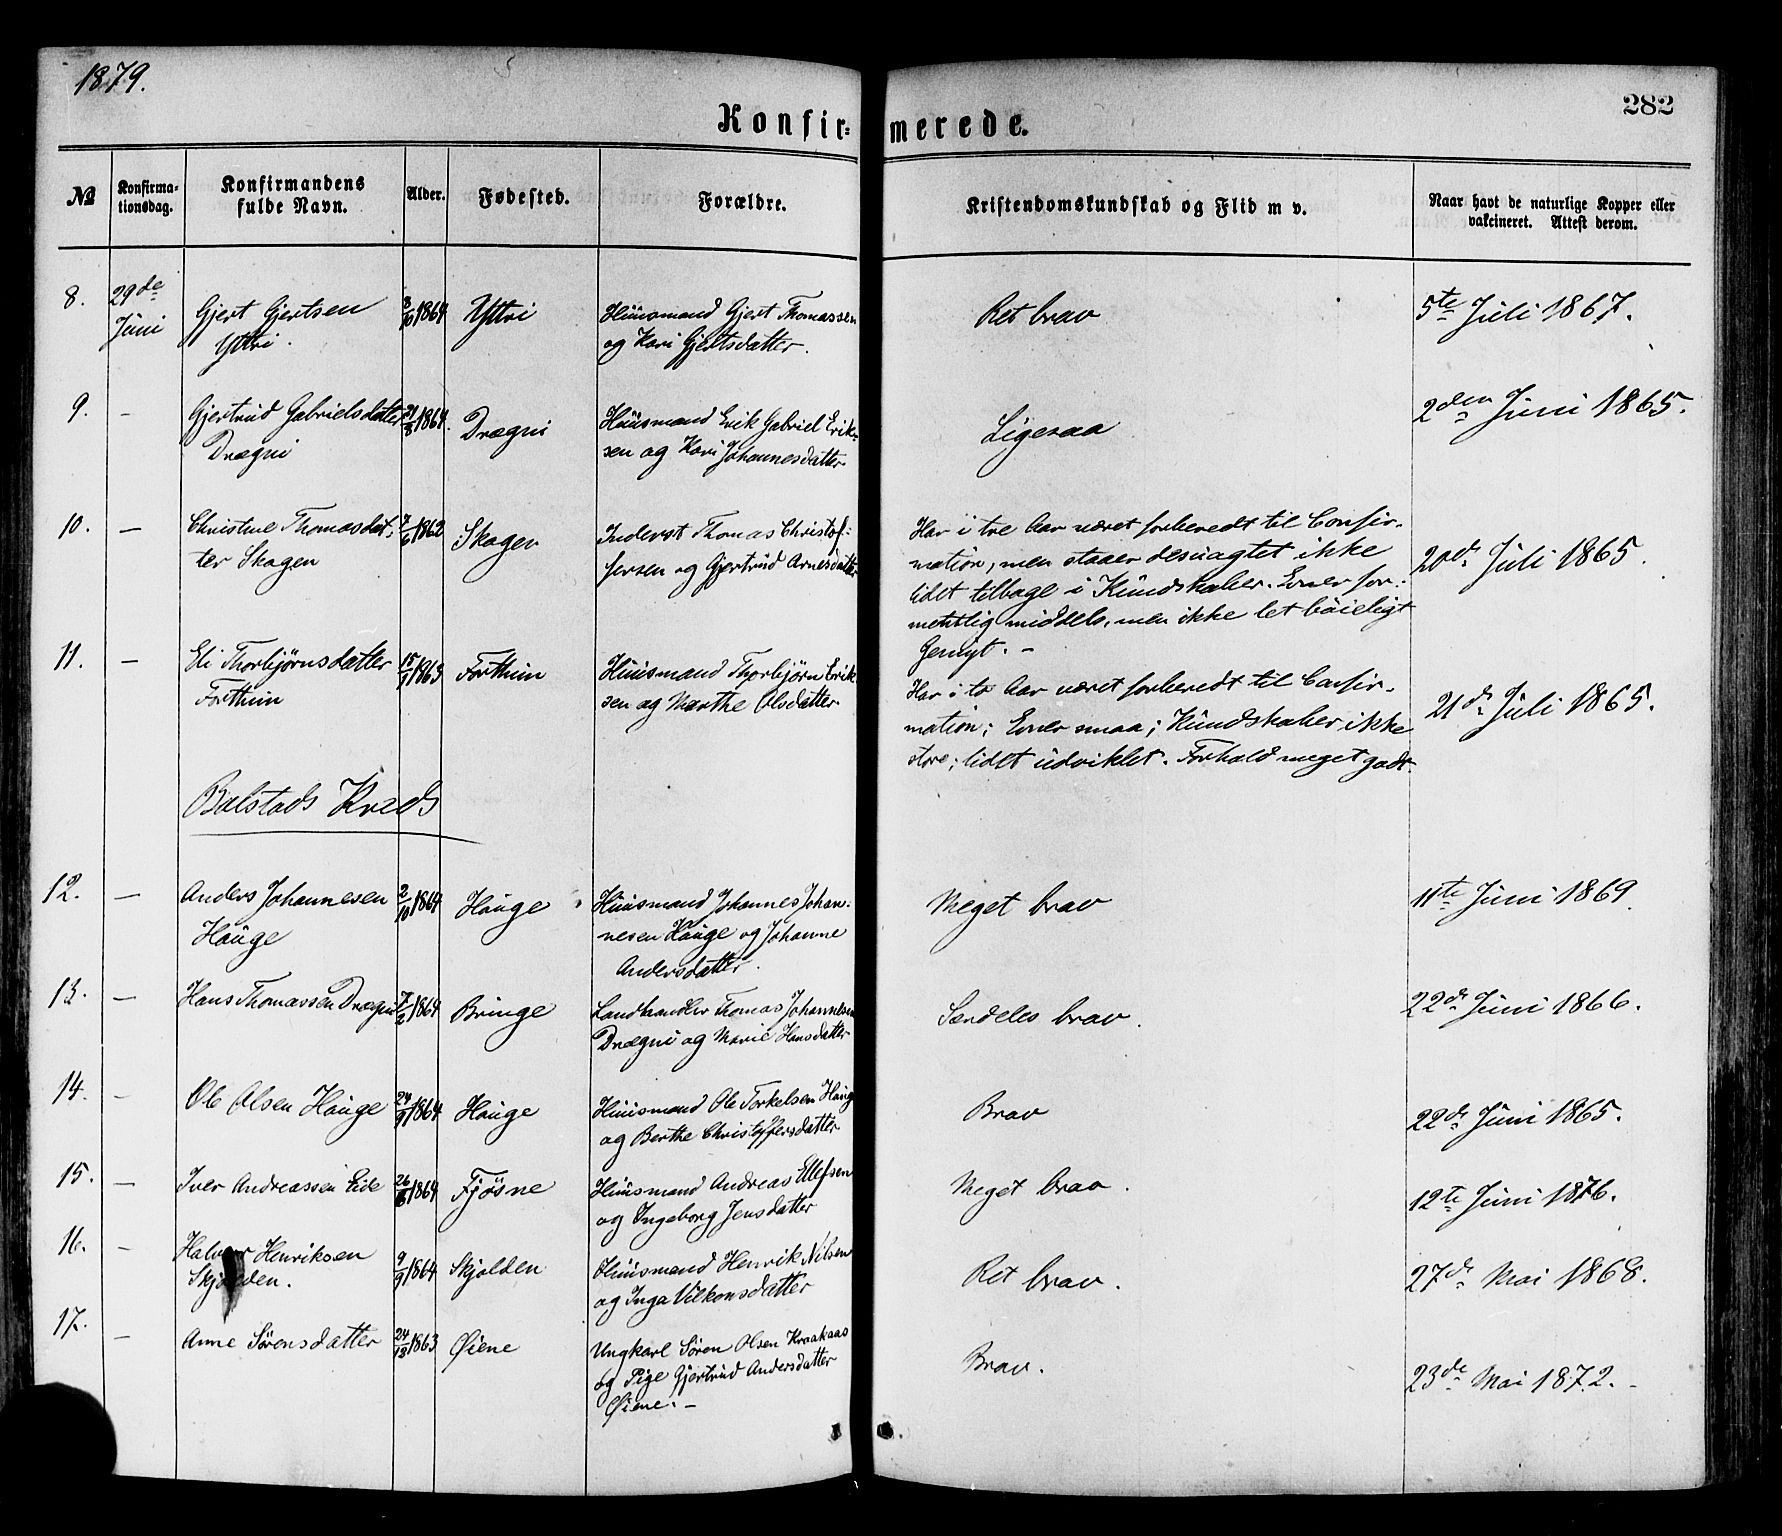 1879.
282
Konfir= merede.
No
Konfirma-
tionsdag.
Konfirmandens
fulde Navn.
Alder.
Fødested.
Forældre.
Kristendomskundskab og Flid m v.
Naar havt de naturlige Kopper eller
vakcineret. Attest derom.
8. 29de Juni
Gjert Gjertsen
Yttri.
3/10 1864 Yttri
Huusmand Gjert Thomassen
og Kari Gjertsdatter.
Ret brav
5te Juli 1867.
9. -
Gjertrud Gabrielsdatter
Drægni
21/8 1864. Drægni
Huusmand Erik Gabriel Erik-
sen og Kari Johannesdatter
Ligesaa
2den Juni 1865.
10. -
Christine Thomasdat-
ter Skagen
7/6 1862 Skagen
Inderst Thomas Christof-
fersen og Gjertrud Arnesdatter
Har i tre Aar været forberedt til Confir-
mation, men staaer desuagtet ikke
lidet tilbage i Kundskaber. Evner for-
mentlig middels, men ikke let böieligt
Gemyt. -
20de Juli 1865.
11. -
Eli Thorbjørnsdatter
Forthun
15/9 1863 Forthun
Huusmand Thorbjørn Erik
sen og Marthe Olsdatter
Har i to Aar været forberedt til Confir-
mation; Evner smaa; Kundskaber ikke
store; lidet udviklet. Forhold meget godt.
21de Juli 1865.
Bolstads Kreds
12. -
Anders Johannesen
Hauge
2/10 1864 Hauge
Huusmand Johannes Johan-
nesen Hauge og Johanne
Andersdatter.
Meget brav
11te Juni 1869.
13. -
Hans Thomassen Drægni
7/2 1864 Bringe
Landhandler Thomas Johannesen
Drægni og Marie Hansdatter
Særdeles brav.
22de Juni 1866.
14. -
Ole Olsen Hauge
24/9 1864 Hauge
Huusmand Ole Torkelsen Haug
og Berthe Christoffersdatter
Brav
22de Juni 1865.
15. -
Iver Andreassen Eide
26/8 1864 Fjøsne
Huusmand Andreas Ellefsen
og Ingeborg Jensdatter
Meget brav.
12te Juni 1876.
16. -
Halvor Henriksen
Skjolden.
9/9 1864 Skjolden
Huusmand Henrik Nilsen
og Inga Vilkomsdatter
Ret brav.
27de Mai 1868.
17. -
Anne Sørensdatter
24/12 1863 Øiene
Ungkarl Søren Olsen Kraakaas
og Pige Gjertrud Andersdatter
Øiene. -
Brav.
23de Mai 1872. -